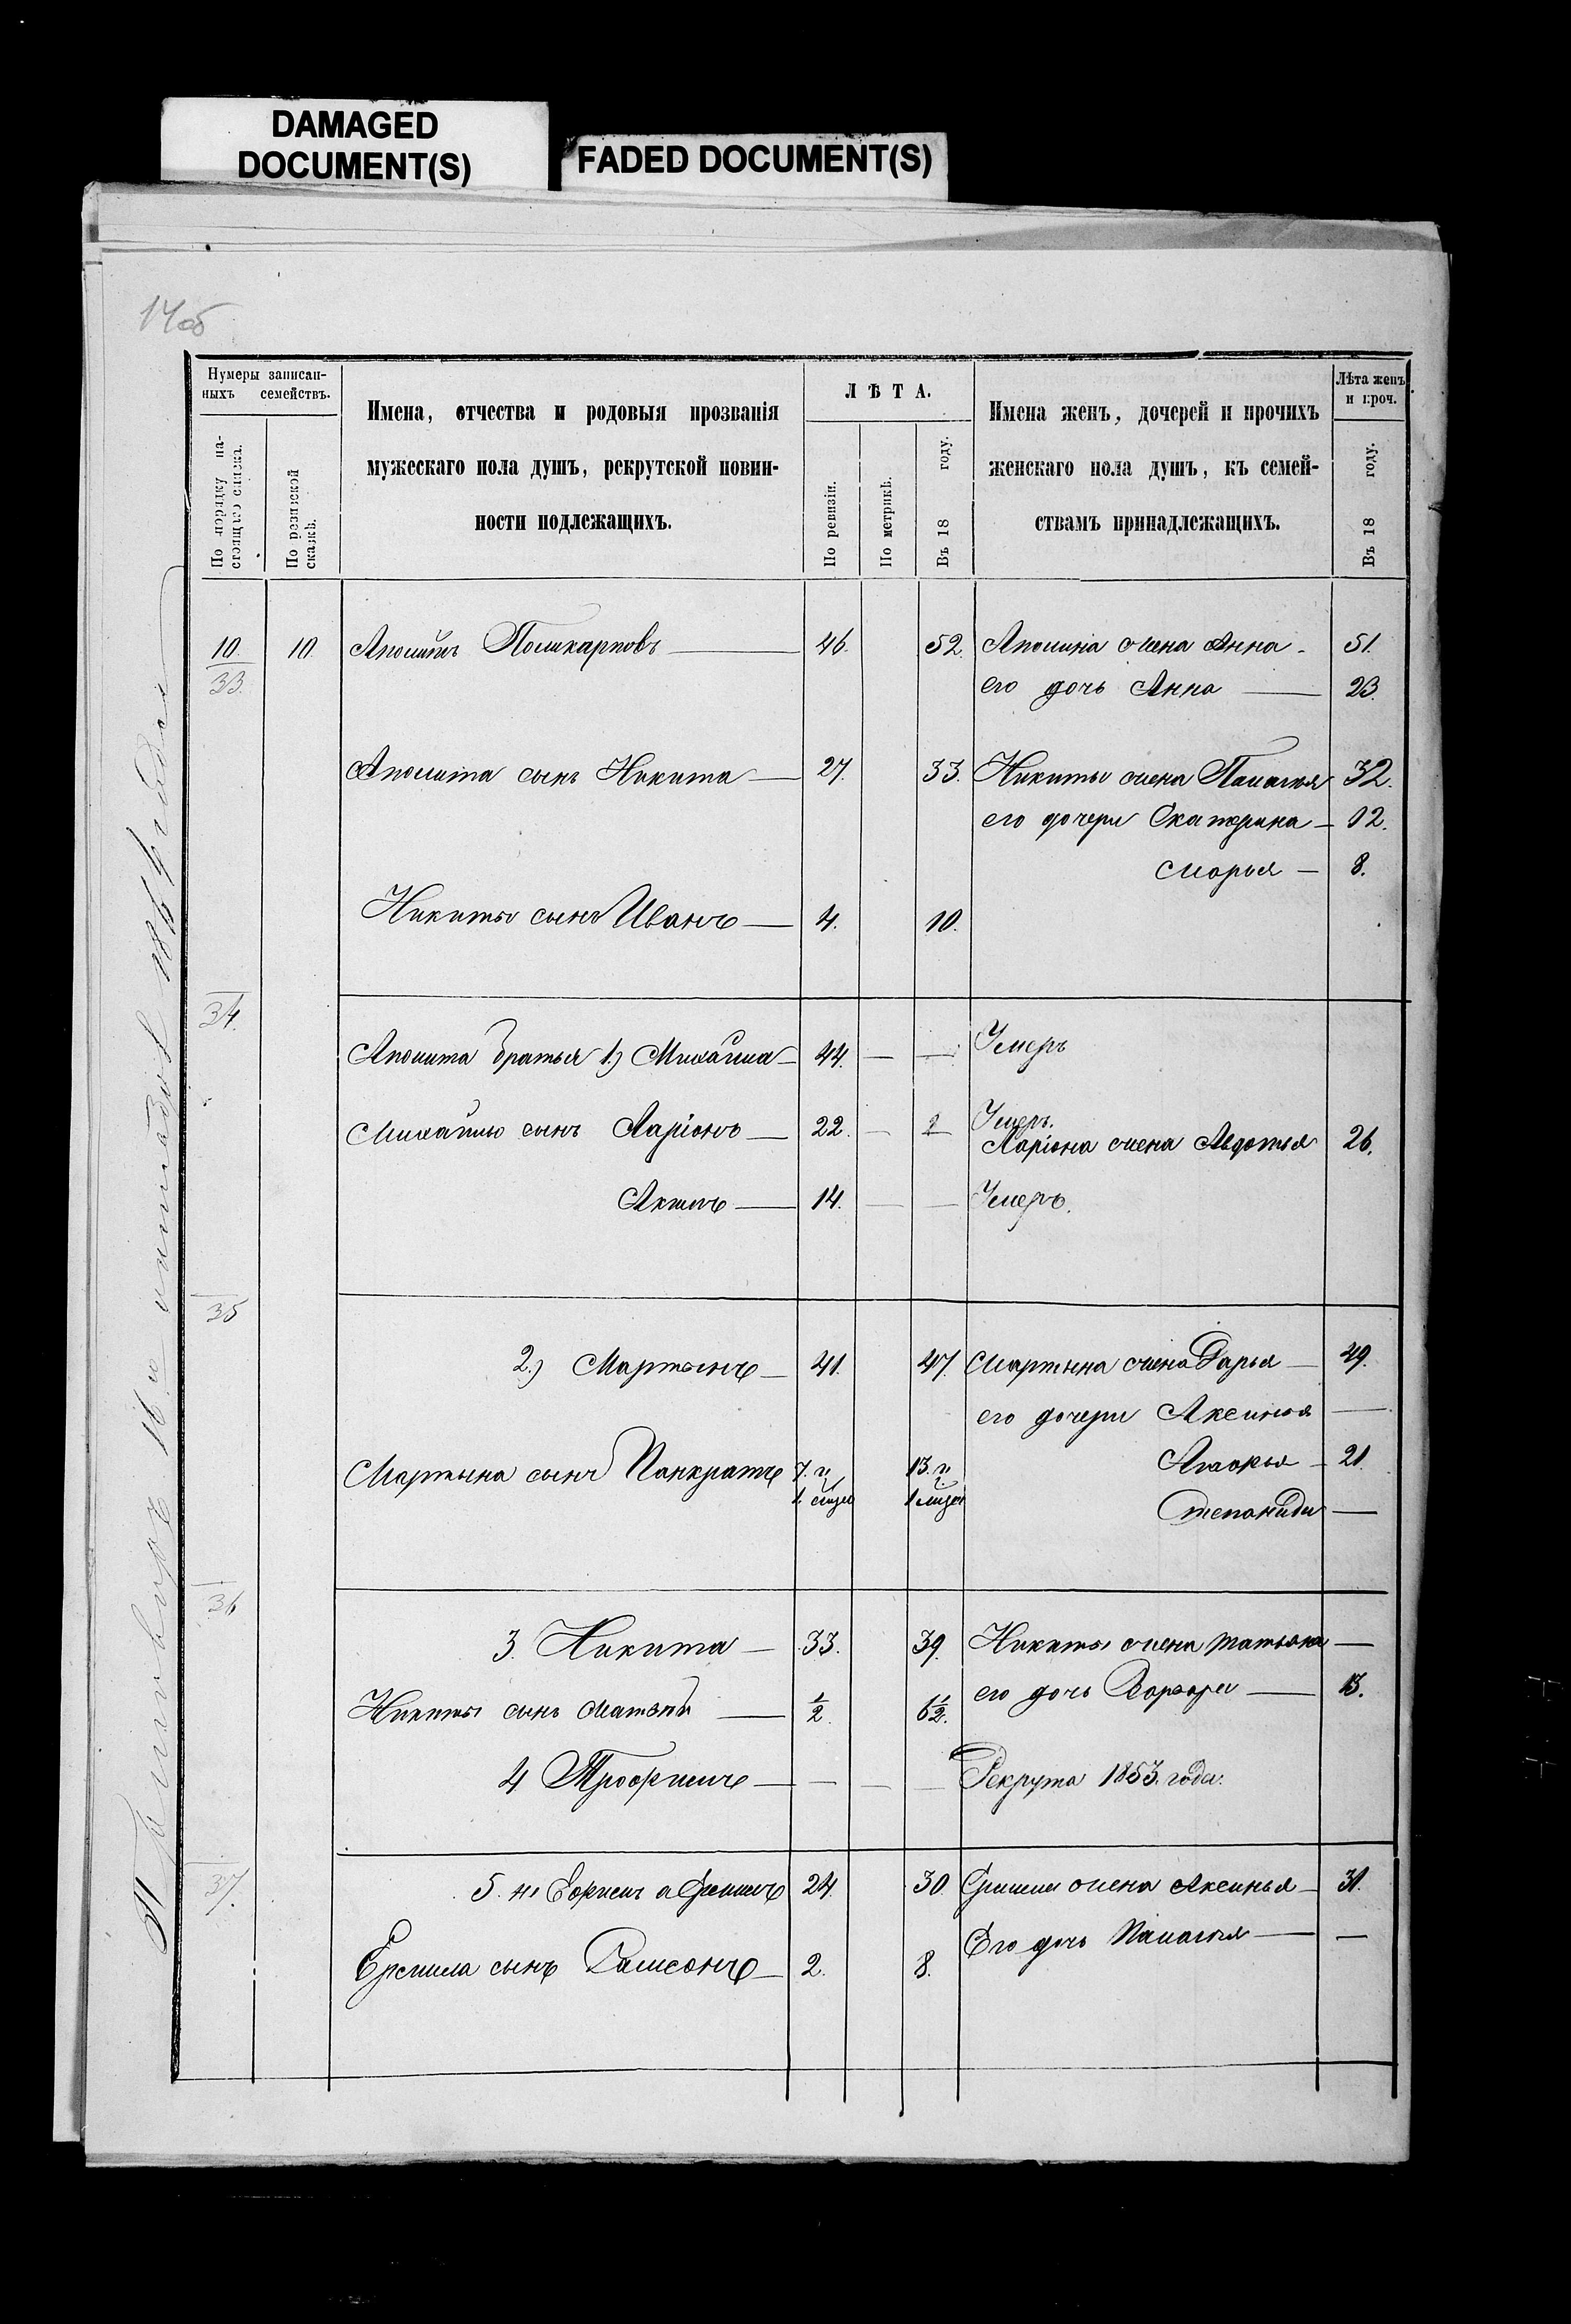 DAMAGED
DOCUMENT(S)
FADED DOCUMENT(S)
14об
Нумеры записан-
ныхъ семействъ.
По порядку на-
стоящаго списка.
По ревизской
сказкѣ.
Имена, отчества и родовыя прозванія
мужескаго пола душъ, рекрутской повин-
ности подлежащихъ.
ЛѢТА.
По ревизіи.
По метрикѣ.
Въ 18 году.
Имена женъ, дочерей и прочихъ
женскаго пола душъ, къ семей-
ствамъ принадлежащихъ.
Лѣта женъ
и проч.
Въ 18 году.
10. 10. Поликарповъ — 46. 52. жена Анна - 51.
33. его дочь Анна — 23.
сынъ Никита — 27. 33. Никиты жена Палагея 32.
его дочери Екатерина — 12.
Марья — 8.
Никиты сынъ Иванъ — 4. 10.
34.
братья 1.) Михайла — 44. — — Умеръ
Михайлы сынъ Ларіонъ — 22. — Умеръ.
Ларіона жена Авдотья 26.
14. — — Умеръ.
35
2.) Мартынъ — 41. 47. Мартына жена Дарья — 49.
его дочери Аксинья —
Мартына сынъ Панкратъ 7. и 13. и Агафья — 21.
Степанида —
36
3. Никита — 33. 39. Никиты жена Татьяна —
Никиты сынъ Матвѣй — 1/2. 6 1/2. его дочь Варвара — 13.
4 Трофимъ — — — — Рекрутъ 1853. года.
37.
5. 24. 30 жена Аксинья — 31.
Его дочь Палагея — —
Ермила сынъ Самсонъ — 2. 8.